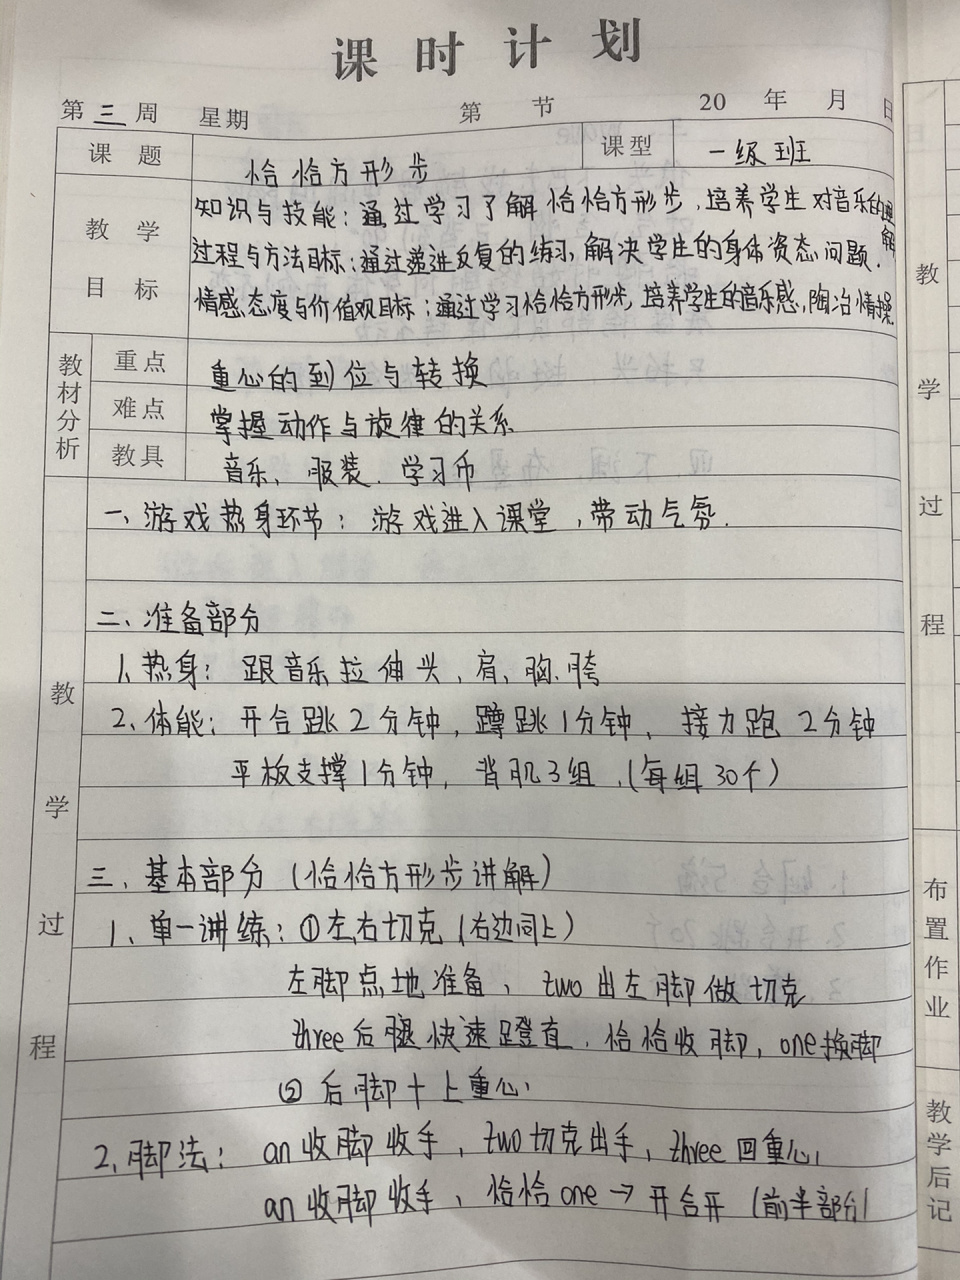 课时计划
第 三 周 星期 第 节 20 年 月 日
课题 恰恰方形步 课型 一级班
教学目标
知识与技能：通过学习了解恰恰方形步，培养学生对音乐的理解
过程与方法目标：通过递进反复的练习，解决学生的身体姿态问题.
情感态度与价值观目标：通过学习恰恰方形步，培养学生的音乐感，陶冶情操
教材分析
重点 重心的到位与转换
难点 掌握动作与旋律的关系
教具 音乐、服装、学习币
教学过程
一、游戏热身环节：游戏进入课堂，带动气氛.
二、准备部分
1、热身：跟音乐拉伸头、肩、胸、胯
2、体能：开合跳2分钟，蹲跳1分钟、接力跑 2分钟
平板支撑1分钟，背肌3组，(每组30个)
三、基本部分（恰恰方形步讲解）
1、单一讲练：①左右切克（右边同上）
左脚点地准备、two出左脚做切克
three后腿快速蹬直，恰恰收脚，one换脚
② 后脚十上重心，
2、脚法：an收脚收手，two切克出手，three回重心，
an收脚收手、恰恰one→开合开（前半部分）
教学过程
布置作业
教学后记